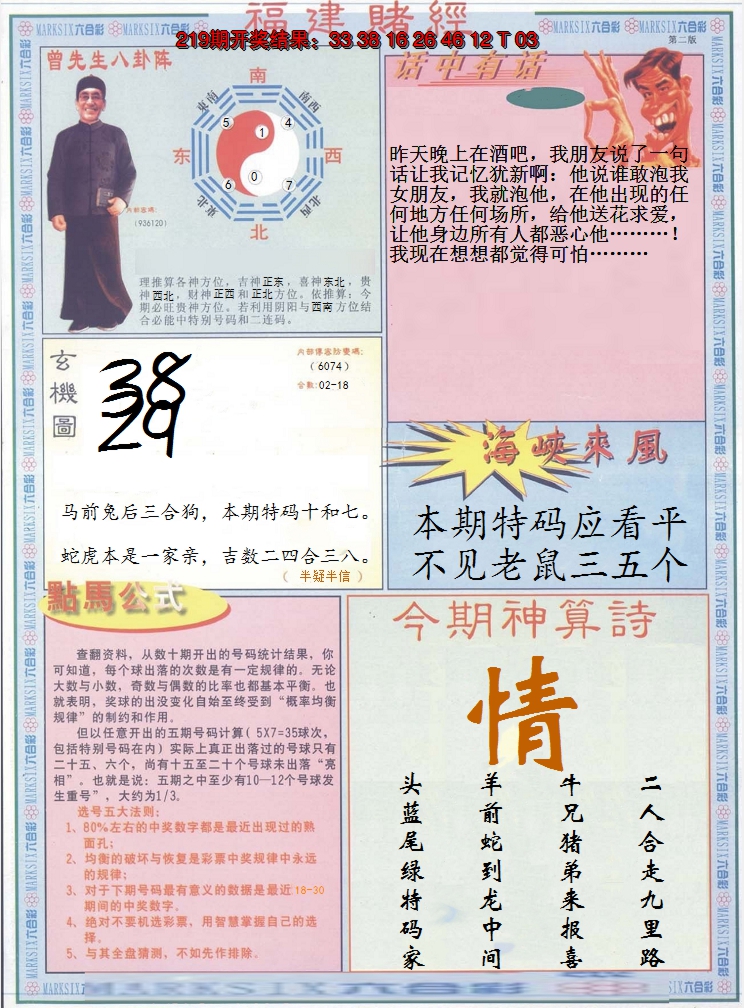 福建賭經
219期开奖结果：33 38 16 26 46 12 T 03
第二版
曾先生八卦陈
南
东南
西南
东
西
东北
西北
北
5
4
1
0
6
7
内部密碼:
(936120)
理推算各神方位，吉神正东，喜神东北，贵
神西北，财神正西和正北方位。依推算：今
期必旺贵神方位。若利用阴阳与西南方位结
合必能中特别号码和二连码。
话中有话
昨天晚上在酒吧，我朋友说了一句
话让我记忆犹新啊：他说谁敢泡我
女朋友，我就泡他，在他出现的任
何地方任何场所，给他送花求爱，
让他身边所有人都恶心他………！
我现在想想都觉得可怕………
玄機圖
38
29
内部傳密防變碼:
(6074)
合数:02-18
马前兔后三合狗，本期特码十和七。
蛇虎本是一家亲，吉数二四合三八。
（ 半疑半信 ）
海峽來風
本期特码应看平
不见老鼠三五个
點馬公式
查翻资料，从数十期开出的号码统计结果，你
可知道，每个球出落的次数是有一定规律的。无论
大数与小数，奇数与偶数的比率也都基本平衡。也
就表明，奖球的出没变化自始至终受到“概率均衡
规律”的制约和作用。
但以任意开出的五期号码计算( 5X7=35球次，
包括特别号码在内) 实际上真正出落过的号球只有
二十五、六个，尚有十五至二十个号球未出落“亮
相”。也就是说：五期之中至少有10—12个号球发
生重号”，大约为1/3。
选号五大法则:
1、80%左右的中奖数字都是最近出现过的熟
面孔；
2、均衡的破坏与恢复是彩票中奖规律中永远
的规律；
3、对于下期号码最有意义的数据是最近18-30
期间的中奖数字。
4、绝对不要机选彩票，用智慧掌握自己的选
择。
5、与其全盘猜测，不如先作排除。
今期神算詩
情
二人合走九里路
牛兄猪弟来报喜
羊前蛇到龙中间
头蓝尾绿特码家